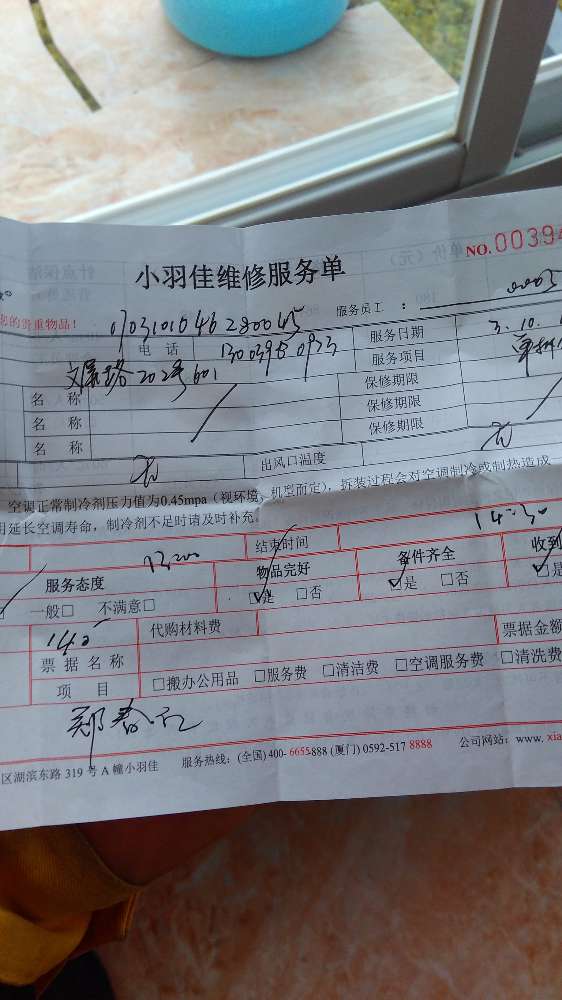 NO.00394
小羽佳维修服务单
您的贵重物品！ 0703101046280045 服务员工：0005
电 话 13003950923 服务日期 3.10.
文屏路202号601 服务项目 单拆
名 称 保修期限
名 称 保修期限
名 称 保修期限
无 出风口温度 无
空调正常制冷剂压力值为0.45mpa（视环境、机型而定），拆装过程会对空调制冷或制热造成
用延长空调寿命，制冷剂不足时请及时补充。
13:00 结束时间 14:30
服务态度 物品完好 备件齐全 收到
一般□ 不满意□ □是 □否 □是 □否 □是
140 代购材料费
票 据 名 称 票据金额
项 目 □搬办公用品 □服务费 □清洁费 □空调服务费 □清洗费
郑春
区湖滨东路 319 号 A 幢小羽佳 服务热线：(全国) 400-6655-888 (厦门) 0592-517 8888 公司网站：www. xia